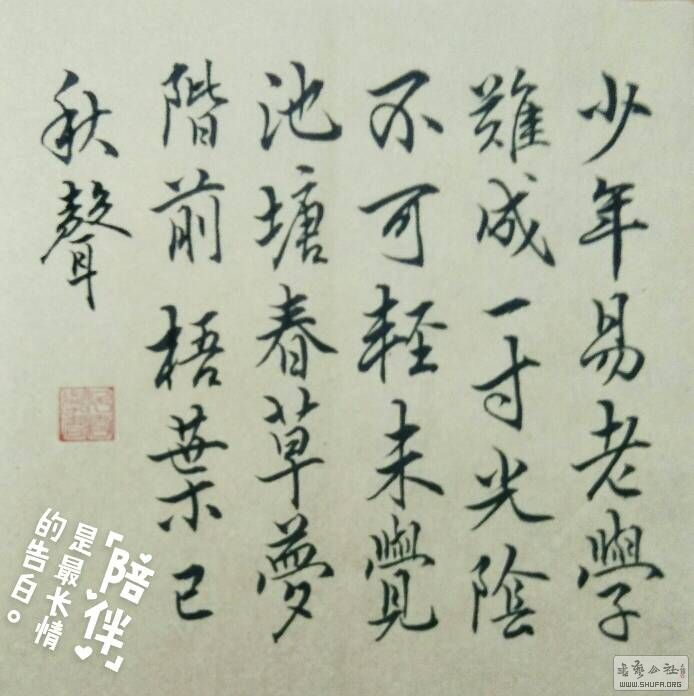 少年易老學
難成一寸光陰
不可輕未覺
池塘春草夢
階前梧葉已
秋聲
「陪伴」
是最长情
的告白。
WWW.SHUFA.ORG